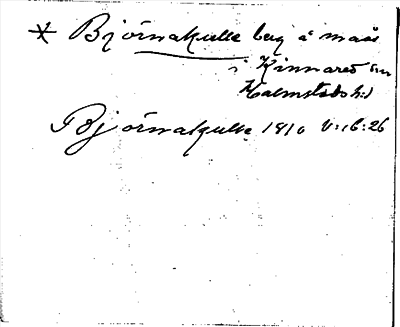 * Björnakulle berg å mads
i Kinnared sn
Halmstads hd
Björnakulle 1810 V:16:26